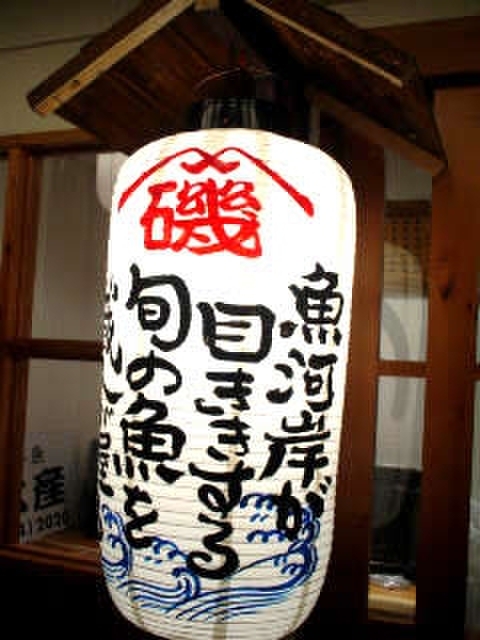 磯
魚河岸が
目ききする
旬の魚を
産
2020